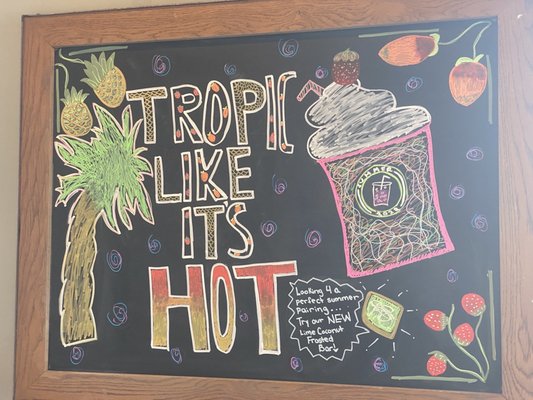 TROPIC
LIKE
ITS
HOT
Looking 4 a
perfect summer
pairing...
Try our NEW
Lime Coconut
Frosted
Bar!